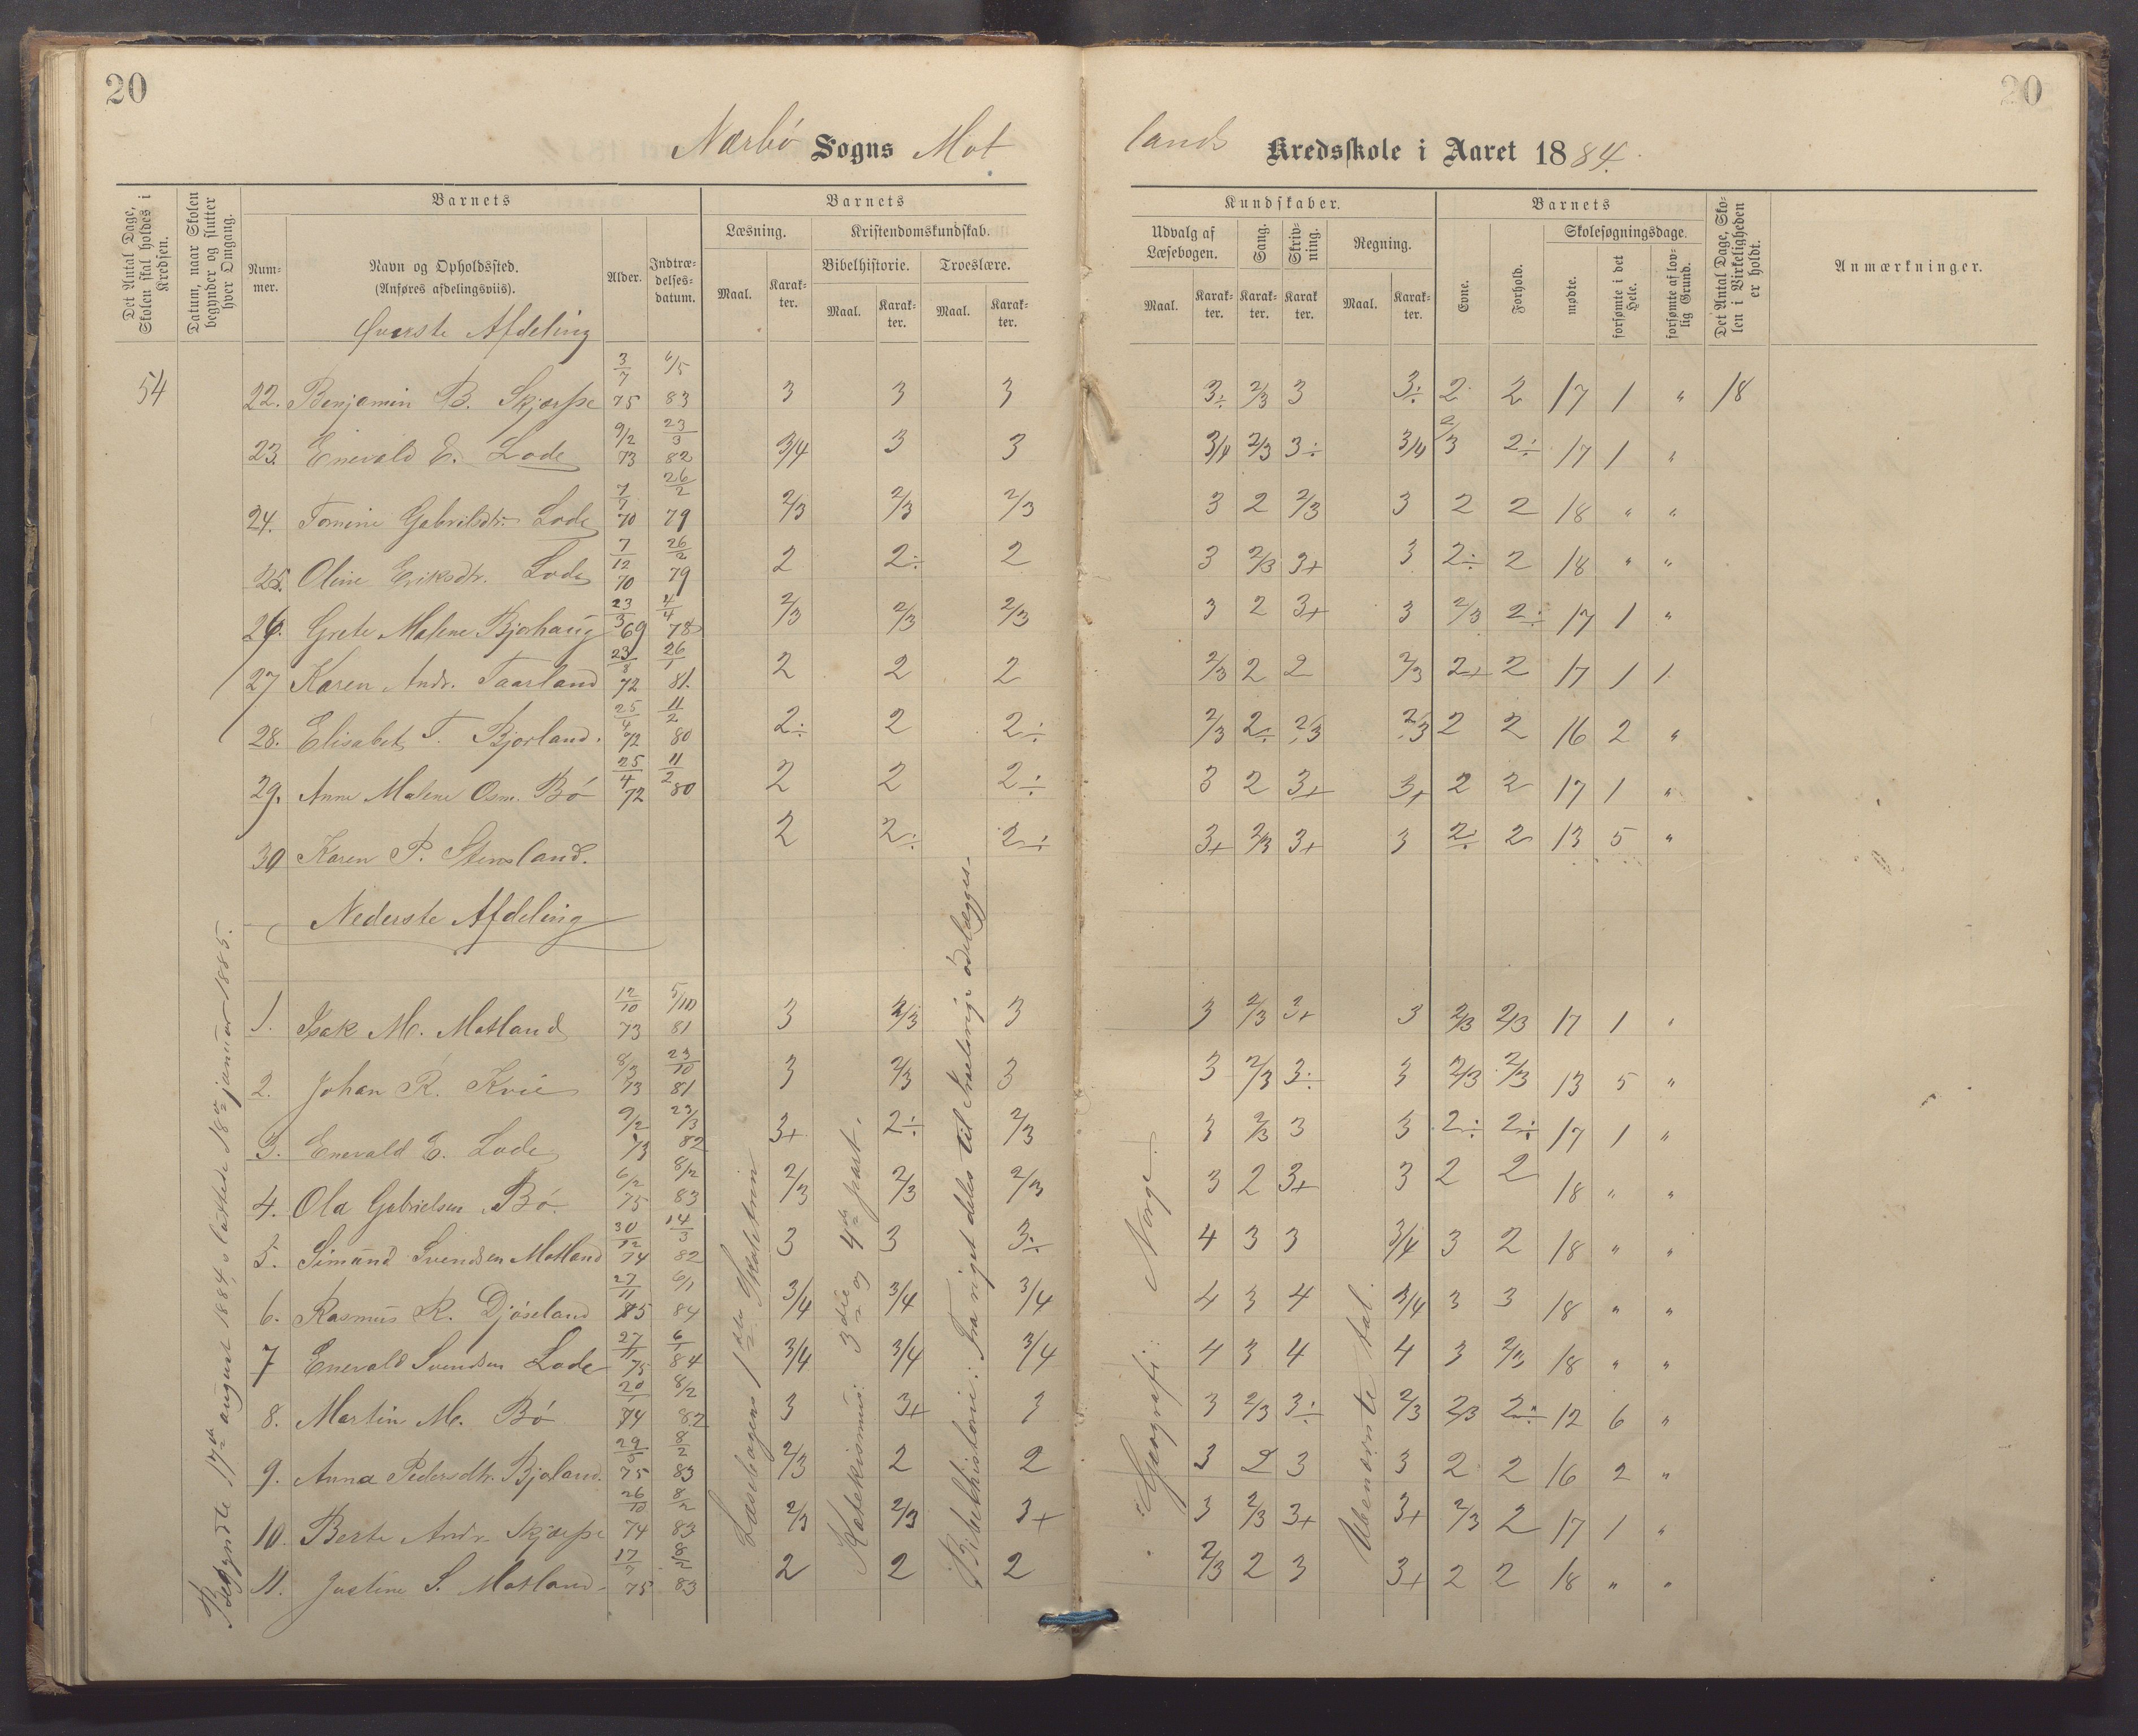 20
20
Nærbö Sogns Mot
lands Kredsskole i Aaret 1884.
Det Antal Dage, Skolen skal holdes i Kredsen.
Datum, naar Skolen begynder og slutter hver Omgang.
Barnets
Num-mer.
Navn og Opholdssted.
(Anføres afdelingsviis).
Alder.
Indtræ-delses-datum.
Barnets
Læsning.
Maal.
Karak-ter.
Kristendomskundskab.
Bibelhistorie.
Maal.
Karak-ter.
Troeslære.
Maal.
Karak-ter.
Kundskaber.
Udvalg af Læsebogen.
Maal.
Karak-ter.
Sang.
Karak-ter.
Skriv-ning.
Karak ter.
Regning.
Maal.
Karak-ter.
Barnets
Evne.
Forhold.
Skolesøgningsdage.
mødte.
forsømte i det Hele.
forsømte af lov-lig Grund.
Det Antal Dage, Sko-len i Virkeligheden er holdt.
Anmærkninger.
Øverste Afdeling
54 22. Benjamin B. Skjærpe 3/7 75 6/5 83 3 3 3 3÷ 2/3 3 3÷ 2 2 17 1 " 18
23. Enevald E. Lode 9/2 73 23/3 82 3/4 3 3 3/4 2/3 3÷ 3/4 2/3 2÷ 17 1 "
24. Tomine Gabrilsdtr. Lode 7/7 70 26/2 79 2/3 2/3 2/3 3 2 2/3 3 2 2 18 " "
25. Oline Eriksdtr. Lode 7/12 70 26/2 79 2 2÷ 2 3 2/3 3+ 3 2÷ 2 18 " "
26. Grete Malene Bjorhaug 23/3 69 4/4 78 2/3 2/3 2/3 3 2 3+ 3 2/3 2÷ 17 1 "
27 Karen Andr. Taarland 23/8 72 26/1 81. 2 2 2 2/3 2 2 2/3 2+ 2 17 1 1
28. Elisabet T. Bjorland. 25/4 72 11/2 80 2÷ 2 2÷ 2/3 2÷ 2/3 2/3 2 2 16 2 "
29. Anne Malene Osm. Bö 25/4 72 11/2 80 2 2 2÷ 3 2 3+ 3+ 2 2 17 1 "
30 Karen P. Stensland. 2 2÷ 2÷ 3+ 2/3 3+ 3 2÷ 2 13 5 "
Nederste Afdeling
1. Isak M. Motland 12/10 73 5/10 81 3 2/3 3 3 2/3 3+ 3 2/3 2/3 17 1 "
2. Johan R. Kvie 8/3 73 23/10 81 3 2/3 3 3 2/3 3÷ 3 2/3 2/3 13 5 "
3. Enevald E. Lode 9/2 73 23/3 82 3+ 2÷ 2/3 3 2/3 3 3 2÷ 2÷ 17 1 "
4. Ola Gabrielsen Bö. 6/2 75 8/2 83 2/3 2/3 2/3 3 2 3+ 3 2 2 18 " "
5. Simand Svendsen Motland 30/12 74 14/3 82 3 3 3÷ 4 3 3 3/4 3 2 18 " "
6. Rasmus R. Djöseland 27/11 75 6/1 84 3/4 3/4 3/4 4 3 4 3/4 3 3 18 " "
7 Enevald Svendsen Lode 27/11 75 6/1 84 3/4 3/4 3/4 4 3 4 4 3 2/3 18 " "
8. Martin M. Bö 20/1 74 8/2 82 3 3+ 3 3 2/3 3÷ 2/3 2/3 2÷ 12 6 "
9. Anna Pedersdtr. Bjoland. 29/9 75 8/2 83 2/3 2 2 3 2 3 3 2 2 16 2 "
10. Berte Andr. Skjærpe 26/10 74 8/2 83 2/3 2/3 3+ 3 2/3 3+ 3+ 2/3 2 17 1 "
11. Justine S. Motland 17/7 75 8/2 83 2 2 2 2/3 2 3 3+ 2 2 18 " "
Begyndte 17de august 1884, sluttede 18de januar 1885.
Læsebogens 1ste Skoletrin
Katekismus: 3die og 4de part.
Bibelhistorie: Fra riget deles til Snelrige ödelægges.
Geografi: Norge.
Ubenævnte tal.